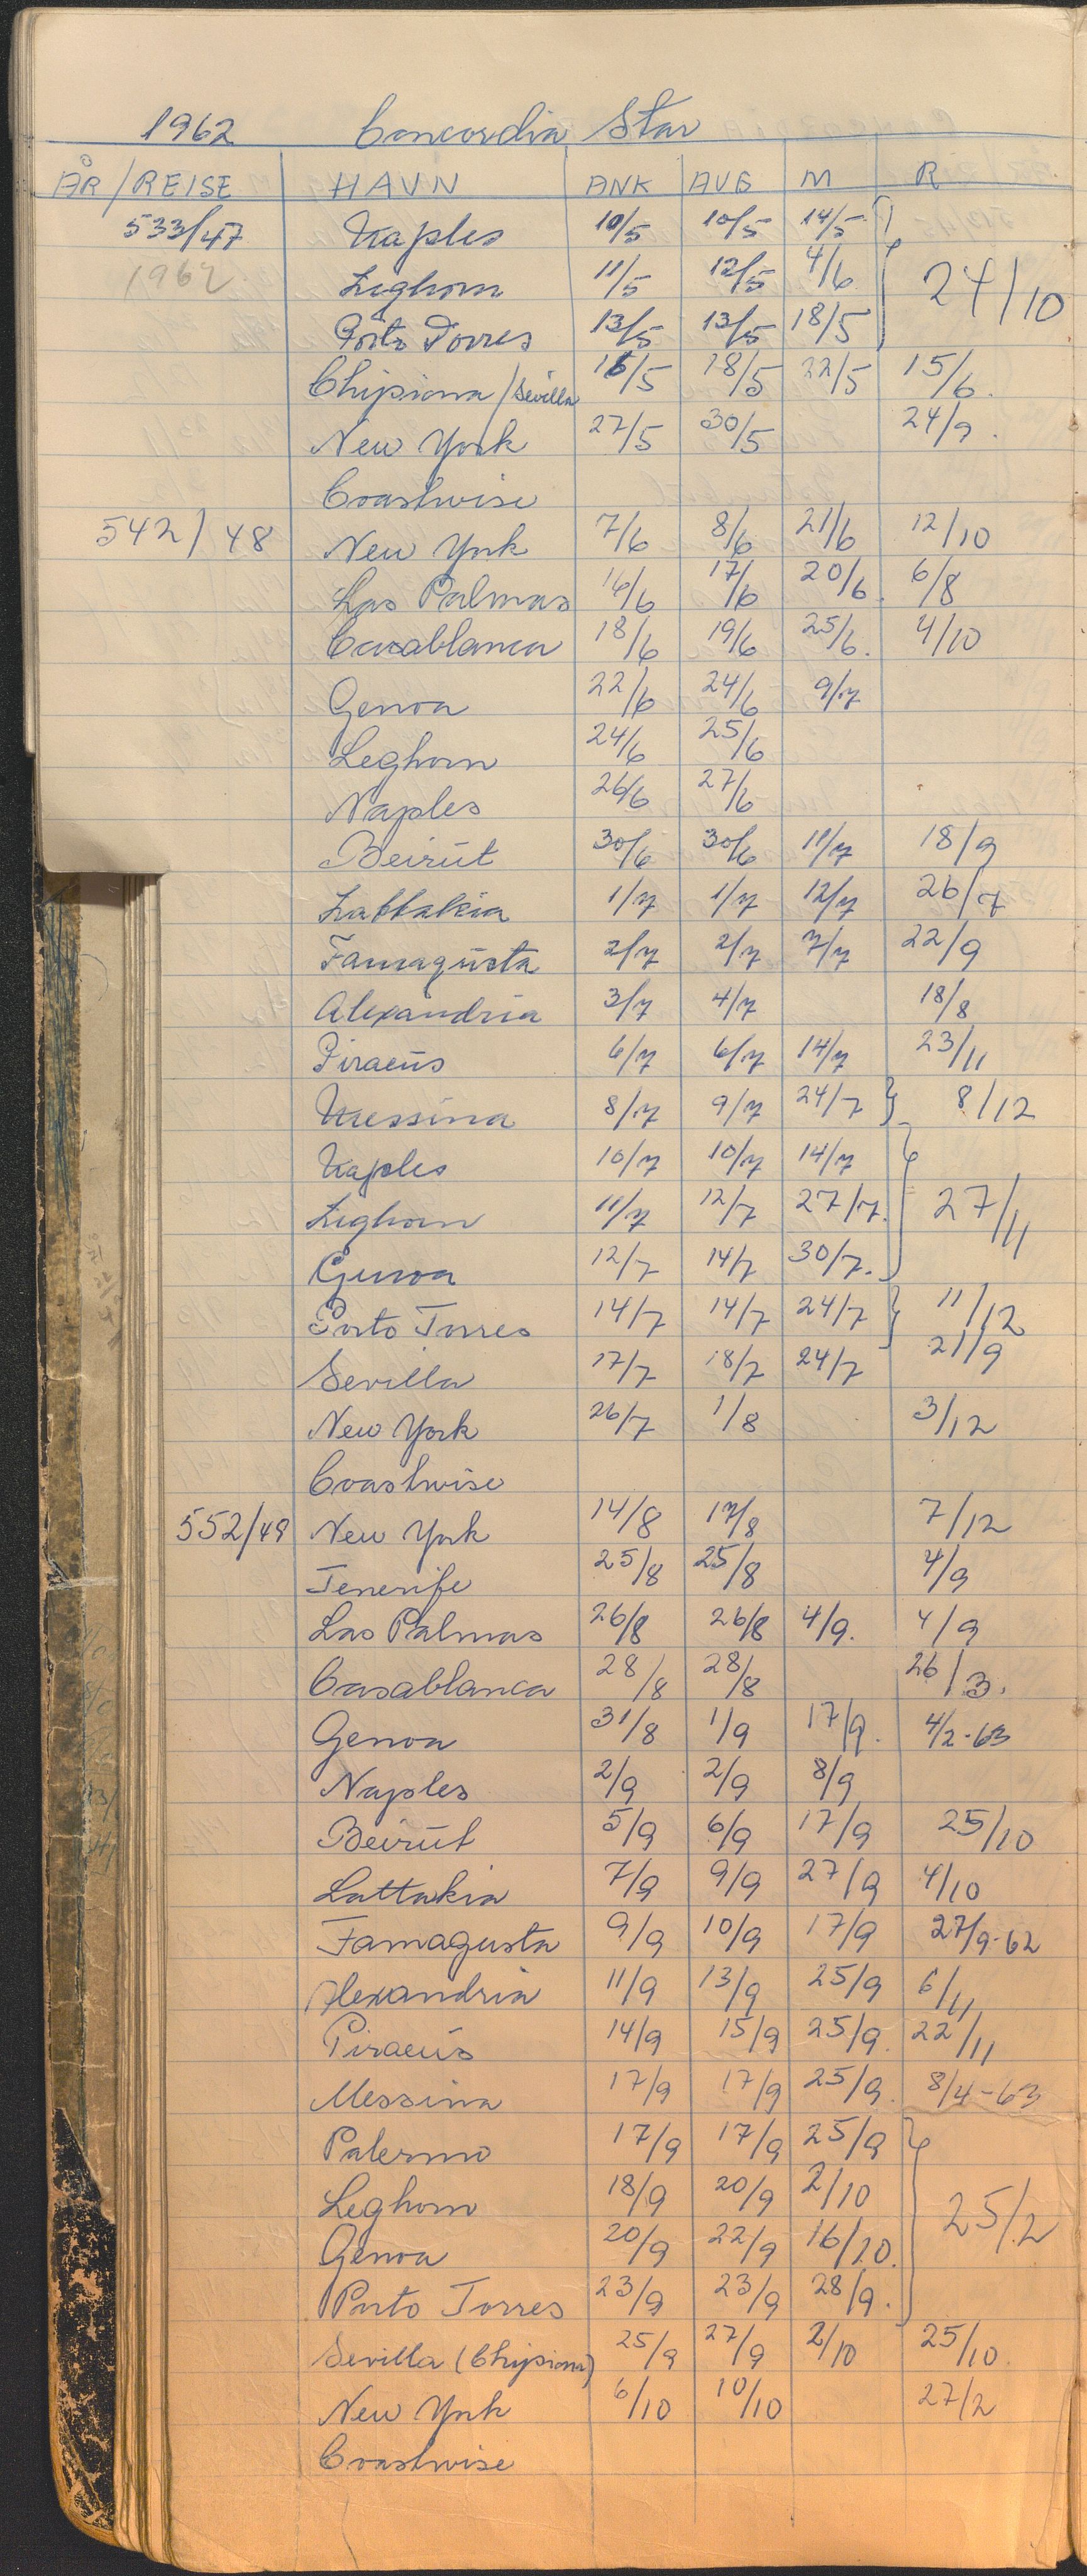 1962 Concordia Star
ÅR/REISE HAVN ANK AVG M R
533/47 Naples 10/5 10/5 14/5
1962 Leghorn 11/5 12/5 4/6 24/10
Porto Torres 13/5 13/5 18/5
Chipiona/Sevilla 16/5 18/5 22/5 15/6.
New York 27/5 30/5 24/9.
Coastwise
542/48 New York 7/6 8/6 21/6 12/10
Las Palmas 16/6 17/6 20/6. 6/8
Casablanca 18/6 19/6 25/6. 4/10
Genoa 22/6 24/6 9/7
Leghorn 24/6 25/6
Naples 26/6 27/6
Beirut 30/6 30/6 11/7 18/9
Lattakia 1/7 1/7 12/7 26/7
Famagusta 2/7 2/7 7/7 22/9
Alexandria 3/7 4/7 18/8
Piraeus 6/7 6/7 14/7 23/11
Messina 8/7 9/7 24/7 8/12
Naples 10/7 10/7 14/7
Leghorn 11/7 12/7 27/7. 27/11
Genoa 12/7 14/7 30/7.
Porto Torres 14/7 14/7 24/7 11/12
Sevilla 17/7 18/7 24/7 21/9
New York 26/7 1/8 3/12
Coastwise
552/49 New York 14/8 17/8 7/12
Tenerife 25/8 25/8 4/9
Las Palmas 26/8 26/8 4/9. 4/9
Casablanca 28/8 28/8 26/3.
Genoa 31/8 1/9 17/9. 4/2-63
Naples 2/9 2/9 8/9
Beirut 5/9 6/9 17/9 25/10
Lattakia 7/9 9/9 27/9 4/10
Famagusta 9/9 10/9 17/9 27/9-62
Alexandria 11/9 13/9 25/9 6/11
Piraeus 14/9 15/9 25/9. 22/11
Messina 17/9 17/9 25/9. 8/4-63
Palermo 17/9 17/9 25/9
Leghorn 18/9 20/9 2/10 25/2
Genoa 20/9 22/9 16/10.
Porto Torres 23/9 23/9 28/9.
Sevilla (Chipiona) 25/9 27/9 2/10 25/10.
New York 6/10 10/10 27/2
Coastwise